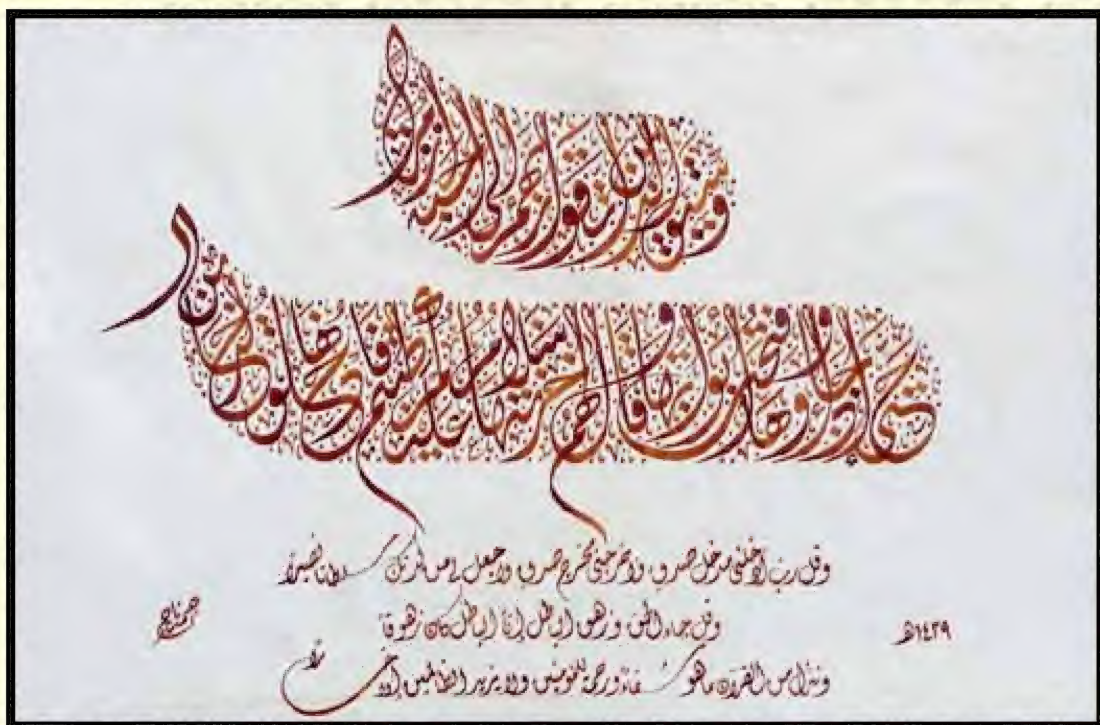 وسيق الذين اتقوا ربهم إلى الجنة زمرا
حتى إذا جاءوها وفتحت أبوابها وقال لهم خزنتها سلام عليكم طبتم فادخلوها خالدين
وقل رب أدخلني مدخل صدق وأخرجني مخرج صدق واجعل لي من لدنك سلطانا نصيرا
وقل جاء الحق وزهق الباطل إن الباطل كان زهوقا
وننزل من القرآن ما هو شفاء ورحمة للمؤمنين ولا يزيد الظالمين إلا خسارا
١٤٢٩هـ